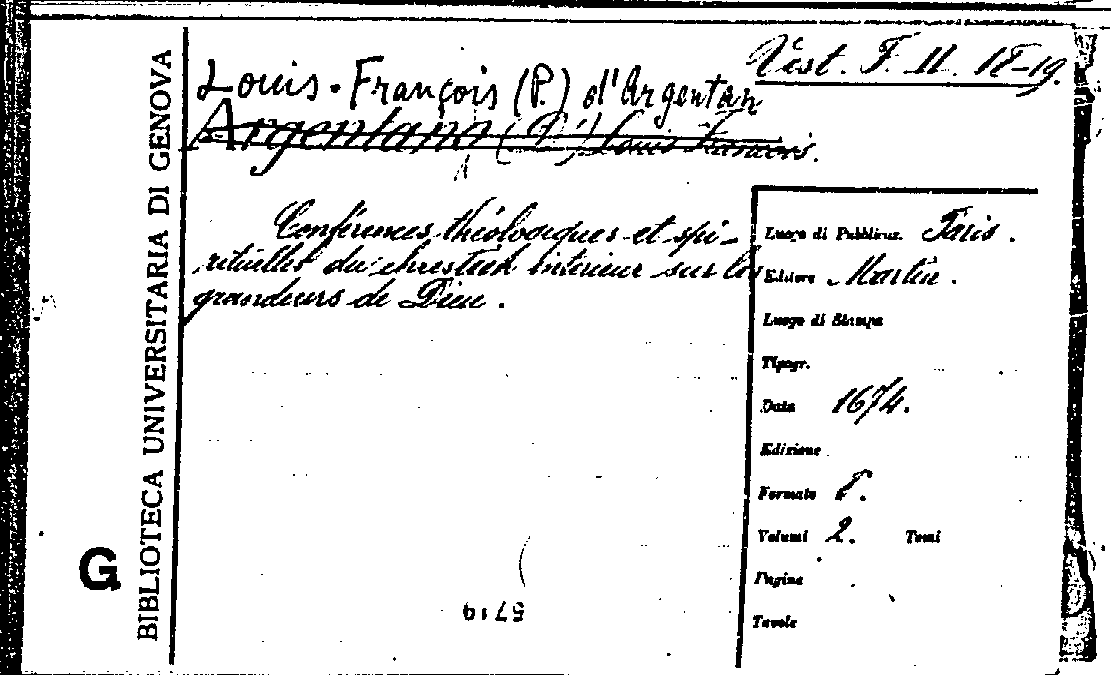 Vest. F. II. 18-19.
Louis-François (P.) d'Argentan
Argentano (P.) Louis François.
Conférences théologiques et spi-
rituelles du chrestien interieur sur les
grandeurs de Dieu.
Luogo di Pubblicaz. Paris.
Editore Martin.
Luogo di Stampa
Tipogr.
Data 1674.
Edizione
Formato 8.
Volumi 2. Tomi
Pagine
Tavole
BIBLIOTECA UNIVERSITARIA DI GENOVA
G